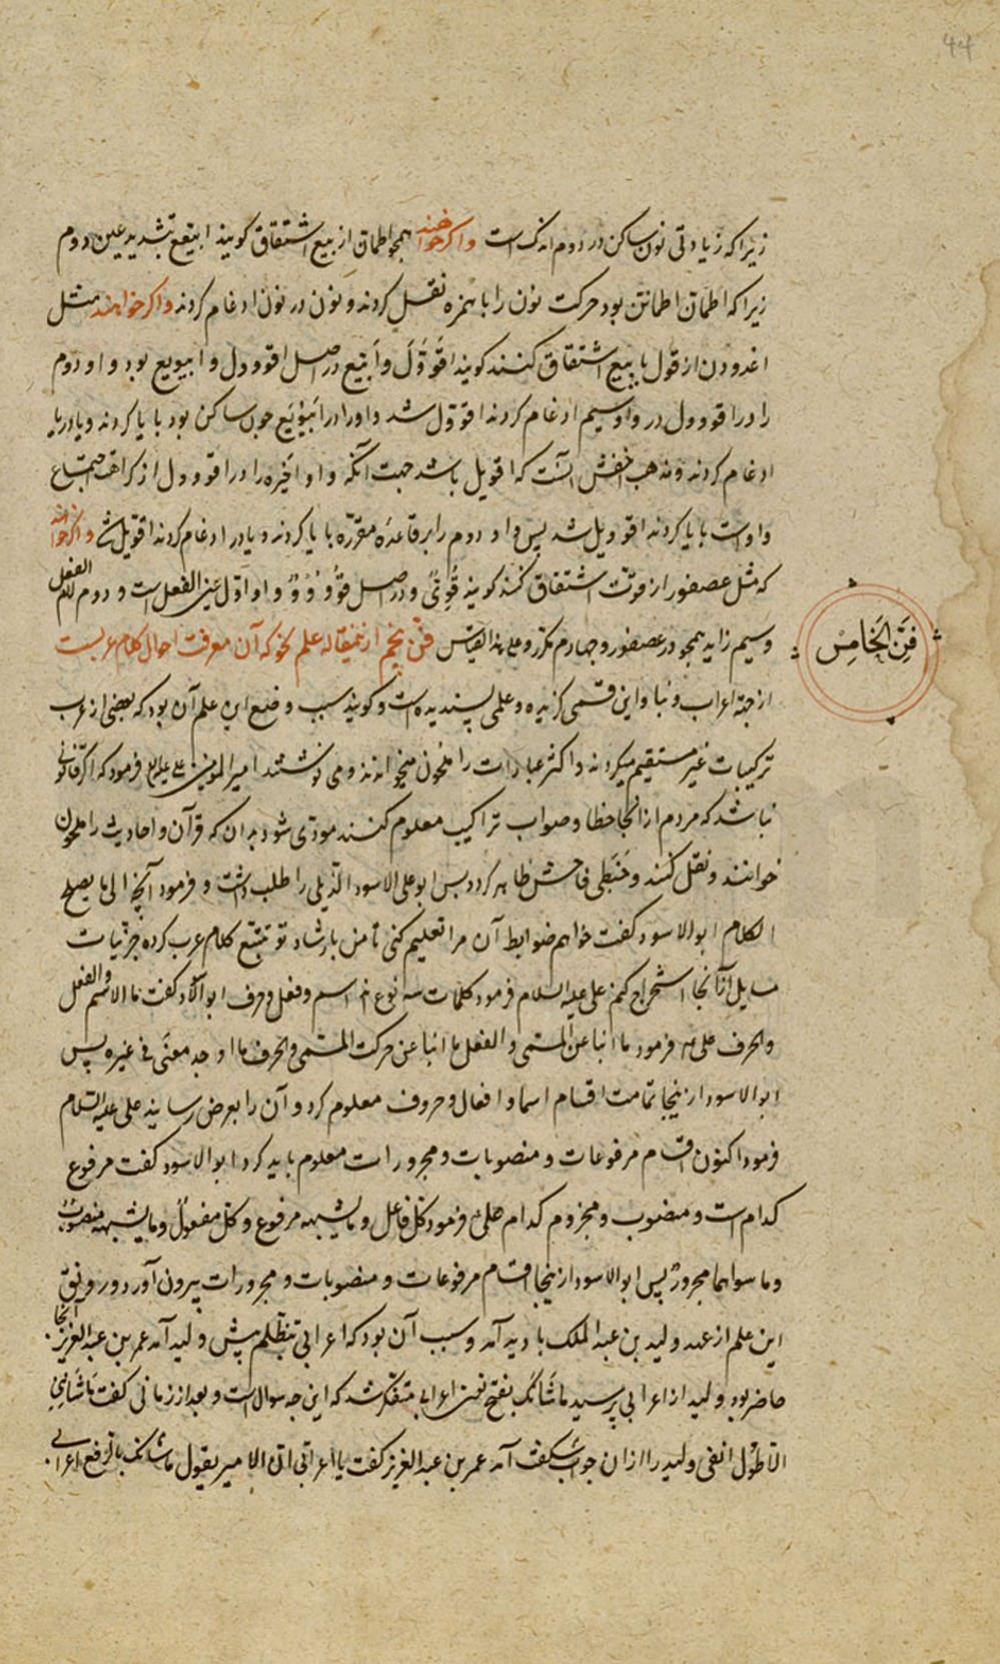 ۴۴
زیرا که زیادتی نون ساکن در دوم اندک است واکر خواهند همچو اطمان از بیع اشتقاق کویند ابیعع بتشدید عین دوم
زیرا که اطمان اطمانن بود حرکت نون را با همزه نقل کردند و نون در نون ادغام کردند واکر خواهند مثل
اغدودن از قول یا بیع اشتقاق کنند کویند اقووّل وابیّع در اصل اقوودل وابیویع بود و او دوم
را در اقوودل در واو سیم ادغام کردند اقوول شد و او را در ابیویع چون ساکن بود با یا کردند و یا در یا
ادغام کردند و مذهب اخفش آنست که اقویل باشد جهت آنکه واو اخیره را در اقوودل از کراهت اجتماع
واوات با یا کردند اقوویل شد پس واو دوم را بر قاعده مقرره با یا کردند و یا در یا ادغام کردند اقویل شد واکر خواهند
که مثل عصفور از قوت اشتقاق کنند کویند قوی و در اصل قووو و او اول عین الفعل است و دوم لام الفعل
وسیم زاید همچو در عصفور و چهارم مکرر و علی هذا القیاس فن پنجم از نمقاله علم نحو که آن معرفت احوال کلام عربست
فن الخامس
از جهة اعراب و بنا و این قسمی کزیده و علمی پسندیده است و کویند سبب وضع این علم آن بود که بعضی از عرب
ترکیبات غیر مستقیم میکردند و اکثر عبارات را ملحون میخواندند و می نوشتند امیر المومنین علی علیه السلام فرمود که اکر قانونی
نباشد که مردم از انجا خطا و صواب تراکیب معلوم کنند مودی شود بدان که قرآن و احادیث را ملحون
خوانند و نقل کنند و خبطی فاحش ظاهر کردد پس ابو علی الاسود الدیلی را طلب داشت و فرمود انحو الی ما یصلح
الکلام ابو الاسود کفت خواهم ضوابط آن مرا تعلیم کنی تا من بارشاد تو تتبع کلام عرب کرده جزئیات
مسایل از آنجا استخراج کنم علی علیه السلام فرمود کلمات سه نوع اند اسم و فعل و حرف ابو الاسود کفت ما الاسم والفعل
والحرف علی فرمود ما انبا عن المسمی والفعل ما انبا عن حرکت المسمی والحرف ما اوجد معنی فی غیره پس
ابو الاسود از ینجا تمامت اقسام اسما و افعال و حروف معلوم کرد و آن را بعرض رسانید علی علیه السلام
فرمود اکنون اقسام مرفوعات و منصوبات و مجرورات معلوم باید کرد ابو الاسود کفت مرفوع
کدام است و منصوب و مجزوم کدام علی فرمود کل فاعل و ما یشبهه مرفوع و کل مفعول و ما یشبهه منصوب
وما سواهما مجرور پس ابو الاسود از ینجا اقسام مرفوعات و منصوبات و مجرورات بیرون آورد و رونق
این علم از عهد ولید بن عبد الملک با دید آمد و سبب آن بود که اعرابی بتظلم پیش ولید آمد عمر بن عبد العزیز آنجا
حاضر بود ولید از اعرابی پرسید ما شانَک بفتح نون اعرابی متفکر شد که این چه سوال است و بعد از زمانی کفت ما شاننی
الا طول انفی ولید را از آن جواب شکفت آمد عمر بن عبد العزیز کفت یا اعرابی ان الامیر یقول ما شانک بالرفع اعرابی